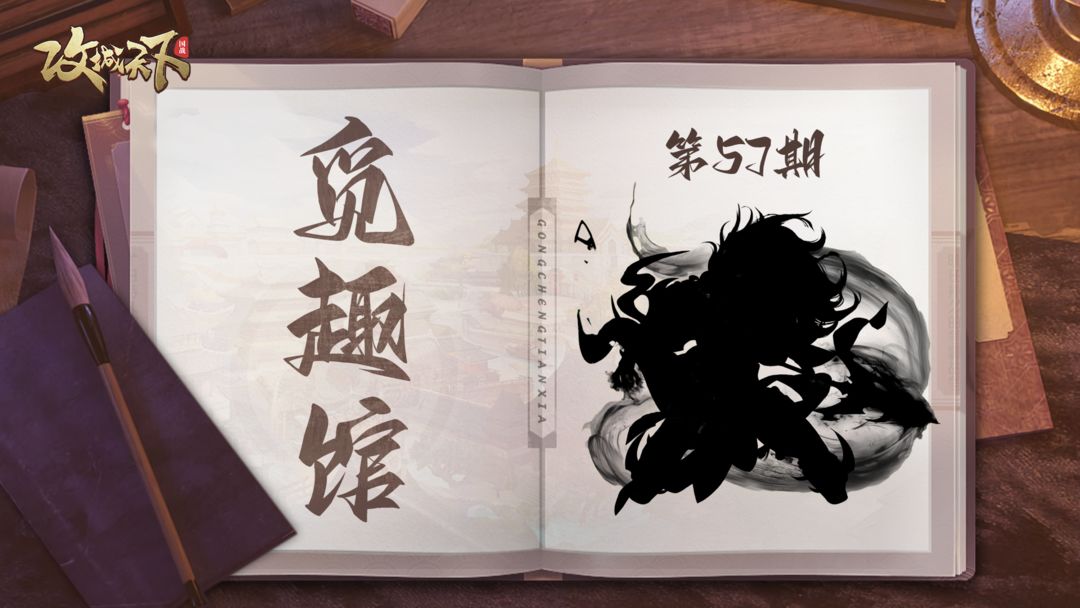 攻城天下
国战
觅趣馆
GONGCHENGTIANXIA
第57期